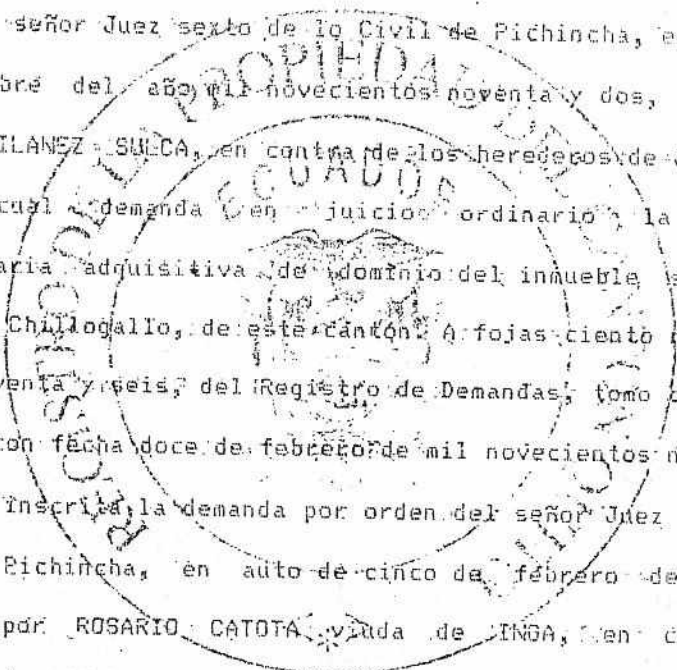 señor Juez sexto de lo Civil de Pichincha, e
bre del año mil novecientos noventa y dos,
ILANEZ SULCA, en contra de los herederos de
cual demanda en juicio ordinario la
aria adquisitiva de dominio del inmueble s
Chillogallo, de este cantón. A fojas ciento
venta y seis, del Registro de Demandas, tomo c
con fecha doce de febrero de mil novecientos n
inscrita la demanda por orden del señor Juez
Pichincha, en auto de cinco de febrero de
por ROSARIO CATOTA viuda de INGA, en c
REGISTRO DE LA PROPIEDAD DEL CANTON QUITO
ECUADOR